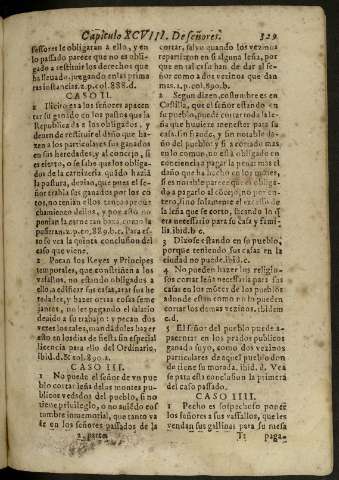 Capitulo XCVIII. De señores.
329
sessores le obligaran a ello, y en
lo passado parece que no es obli-
gado a restituir los derechos que
ha lleuado, juzgando en las prime
ras instancias. 2. p. col. 888. d.
CASO II.
es a los señores apacen
tar su ganado en los pastos que la
Republica da a los obligados, y
deuen de restituir el daño que ha-
zen a los particulares sus ganados
en sus heredades, y al concejo, si
es cierto, o se sabe que los obliga-
dos de la carniceria, quãdo haziã
la postura, dezian, que pues el se-
ñor trahia sus ganados por los co
tos, no tenian ellos tanto aproue
chamiento dellos, y por esto no
ponian la carne tan baxa, como la
pusieran. 2. p. co. 889. b. c. Para es-
to se vea la quinta conclusion del
caso que viene.
2 Pecan los Reyes y Principes
temporales, que constriñen a los
vassallos, no estando obligados a
ello, a edificar sus casas, arar sus he
redades, y hazer otras cosas seme
jantes, no les pegando el salario
deuido a su trabajo: y pecan dos
vezes los tales, mandandoles hazer
esto en los dias de fiesta sin especial
licencia para ello del Ordinario,
ibid. d. & col. 890. a.
CASO III.
1 No puede el señor de vn pue
blo cortar leña de los montes pu-
blicos vedados del pueblo, si no
tiene priuilegio, o no auiẽdo cos
tumbre inmemorial, que tanto va
le en los señores passados de la
2. parte
cortar, saluo quando los vezinos
repartizen en si alguna leña, por
que en tal caso han de dar al se-
ñor como a dos vezinos que dan
mas. 2. p. col. 890. b.
2 Segun dizen, costumbre es en
Castilla, que el señor estando en
su pueblo, puede cortar toda la le-
ña que huuiere menester para su
casa, sin fraude, y sin notable da-
ño del pueblo: y si a cortado mas
en lo comun, no està obligado en
conciencia a pagar la pena: mas el
daño que ha hecho en los montes,
si es notable parece que es obliga-
do a pagarlo al concejo, no por en-
tero, sino solamente el excesso de
la leña que se corto, sacando la q̃
era necessario para su casa y fami-
lia. ibid. b. c.
3 Dixose estando en su pueblo,
porque teniendo sus casas en la
ciudad no puede. ibid. c.
4 No pueden hazer los religio-
sos cortar leña necessaria para sus
casas en los mõtes de los pueblos
adonde estan como no la pueden
cortar los demas vezinos. ibidem
c. d.
5 El señor del pueblo puede a-
pacentar en los prados publicos
ganado suyo, como dos vezinos
particulares de aquel pueblo don
de tiene su morada. ibid. d. Vea
se para esta conclusion la primera
del caso passado.
CASO IIII.
1 Pecho es sospechoso poner
los señores a sus vassallos, que les
vendan sus gallinas para su mesa
paga-